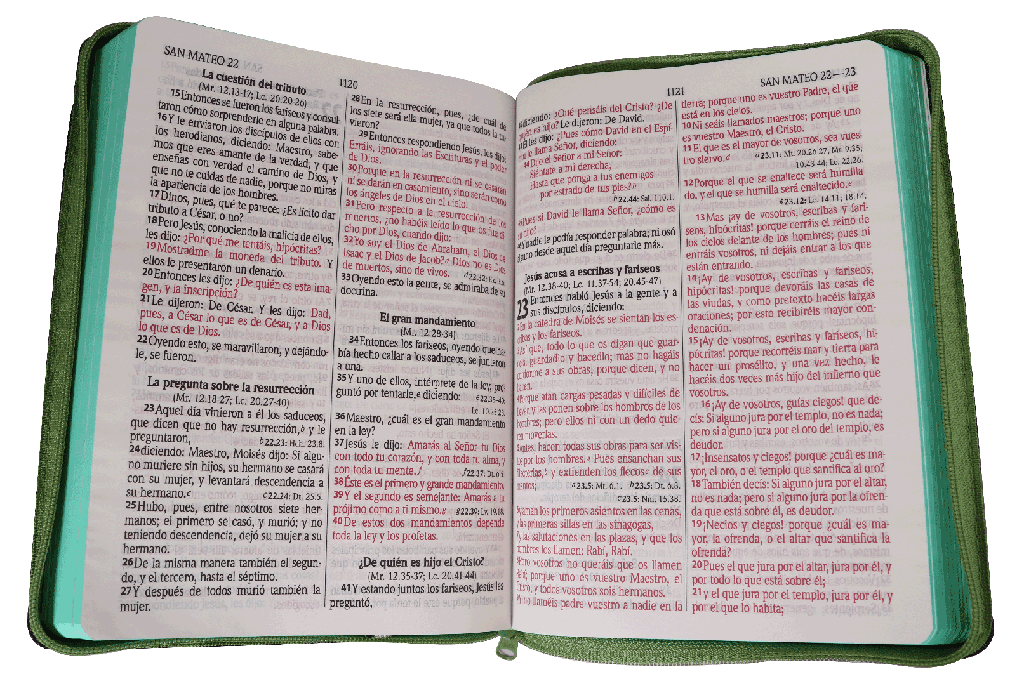 SAN MATEO 22
1120
La cuestión del tributo
(Mr. 12.13-17; Lc. 20.20-26)
15Entonces se fueron los fariseos y consul-
taron cómo sorprenderle en alguna palabra.
16Y le enviaron los discípulos de ellos con
los herodianos, diciendo: Maestro, sabe-
mos que eres amante de la verdad, y que
enseñas con verdad el camino de Dios, y
que no te cuidas de nadie, porque no miras
la apariencia de los hombres.
17Dinos, pues, qué te parece: ¿Es lícito dar
tributo a César, o no?
18Pero Jesús, conociendo la malicia de ellos,
les dijo: ¿Por qué me tentáis, hipócritas?
19Mostradme la moneda del tributo. Y
ellos le presentaron un denario.
20Entonces les dijo: ¿De quién es esta ima-
gen, y la inscripción?
21Le dijeron: De César. Y les dijo: Dad,
pues, a César lo que es de César, y a Dios
lo que es de Dios.
22Oyendo esto, se maravillaron, y dejándo-
le, se fueron.
La pregunta sobre la resurrección
(Mr. 12.18-27; Lc. 20.27-40)
23Aquel día vinieron a él los saduceos,
que dicen que no hay resurrección,b y le
preguntaron,
b22.23: Hch. 23.8.
24diciendo: Maestro, Moisés dijo: Si algu-
no muriere sin hijos, su hermano se casará
con su mujer, y levantará descendencia a
su hermano.c
c22.24: Dt. 25.5.
25Hubo, pues, entre nosotros siete her-
manos; el primero se casó, y murió; y no
teniendo descendencia, dejó su mujer a su
hermano.
26De la misma manera también el segun-
do, y el tercero, hasta el séptimo.
27Y después de todos murió también la
mujer.
28En la resurrección, pues, ¿de cuál de
los siete será ella mujer, ya que todos la tu-
vieron?
29Entonces respondiendo Jesús, les dijo:
Erráis, ignorando las Escrituras y el poder
de Dios.
30Porque en la resurrección ni se casarán
ni se darán en casamiento, sino serán como
los ángeles de Dios en el cielo.
31Pero respecto a la resurrección de los
muertos, ¿no habéis leído lo que os fue di-
cho por Dios, cuando dijo:
32Yo soy el Dios de Abraham, el Dios de
Isaac y el Dios de Jacob? Dios no es Dios
de muertos, sino de vivos.
33Oyendo esto la gente, se admiraba de su
doctrina.
El gran mandamiento
(Mr. 12.28-34)
34Entonces los fariseos, oyendo que ha-
bía hecho callar a los saduceos, se juntaron
a una.
35Y uno de ellos, intérprete de la ley, pre-
guntó por tentarle,e diciendo:
e22.35-40:
Lc. 10.25-28.
36Maestro, ¿cuál es el gran mandamiento
en la ley?
37Jesús le dijo: Amarás al Señor tu Dios
con todo tu corazón, y con toda tu alma, y
con toda tu mente.f
f22.37: Dt. 6.5.
38Éste es el primero y grande mandamiento.
39Y el segundo es semejante: Amarás a tu
prójimo como a ti mismo.g
g22.39: Lv. 19.18.
40De estos dos mandamientos depende
toda la ley y los profetas.
¿De quién es hijo el Cristo?
(Mr. 12.35-37; Lc. 20.41-44)
41Y estando juntos los fariseos, Jesús les
preguntó,
1121
SAN MATEO 22—23
diciendo: ¿Qué pensáis del Cristo? ¿De
quién es hijo? Le dijeron: De David.
Él les dijo: ¿Pues cómo David en el Espí-
ritu le llama Señor, diciendo:
Dijo el Señor a mi Señor:
Siéntate a mi derecha,
Hasta que ponga a tus enemigos
por estrado de tus pies?h
h22.44: Sal. 110.1.
Pues si David le llama Señor, ¿cómo es
su hijo?
Y nadie le podía responder palabra; ni osó
alguno desde aquel día preguntarle más.
Jesús acusa a escribas y fariseos
(Mr. 12.38-40; Lc. 11.37-54; 20.45-47)
23 Entonces habló Jesús a la gente y a
sus discípulos, diciendo:
En la cátedra de Moisés se sientan los es-
cribas y los fariseos.
Así que, todo lo que os digan que guar-
déis, guardadlo y hacedlo; mas no hagáis
conforme a sus obras, porque dicen, y no
hacen.
Porque atan cargas pesadas y difíciles de
llevar, y las ponen sobre los hombros de los
hombres; pero ellos ni con un dedo quie-
ren moverlas.
Antes, hacen todas sus obras para ser vis-
tos por los hombres.a Pues ensanchan sus
filacterias,b y extienden los flecosc de sus
mantos;
a23.5: Mt. 6.1. b23.5: Dt. 6.8.
c23.5: Nm. 15.38.
y aman los primeros asientos en las cenas,
y las primeras sillas en las sinagogas,
y las salutaciones en las plazas, y que los
hombres los llamen: Rabí, Rabí.
Pero vosotros no queráis que os llamen
Rabí; porque uno es vuestro Maestro, el
Cristo, y todos vosotros sois hermanos.
Y no llaméis padre vuestro a nadie en la
tierra; porque uno es vuestro Padre, el que
está en los cielos.
10Ni seáis llamados maestros; porque uno
es vuestro Maestro, el Cristo.
11El que es el mayor de vosotros, sea vues-
tro siervo.d
d23.11: Mt. 20.26-27; Mr. 9.35;
10.43-44; Lc. 22.26.
12Porque el que se enaltece será humilla-
do, y el que se humilla será enaltecido.e
e23.12: Lc. 14.11; 18.14.
13Mas ¡ay de vosotros, escribas y fari-
seos, hipócritas! porque cerráis el reino de
los cielos delante de los hombres; pues ni
entráis vosotros, ni dejáis entrar a los que
están entrando.
14¡Ay de vosotros, escribas y fariseos,
hipócritas! porque devoráis las casas de
las viudas, y como pretexto hacéis largas
oraciones; por esto recibiréis mayor con-
denación.
15¡Ay de vosotros, escribas y fariseos, hi-
pócritas! porque recorréis mar y tierra para
hacer un prosélito, y una vez hecho, le
hacéis dos veces más hijo del infierno que
vosotros.
16¡Ay de vosotros, guías ciegos! que de-
cís: Si alguno jura por el templo, no es nada;
pero si alguno jura por el oro del templo, es
deudor.
17¡Insensatos y ciegos! porque ¿cuál es ma-
yor, el oro, o el templo que santifica al oro?
18También decís: Si alguno jura por el altar,
no es nada; pero si alguno jura por la ofren-
da que está sobre él, es deudor.
19¡Necios y ciegos! porque ¿cuál es ma-
yor, la ofrenda, o el altar que santifica la
ofrenda?
20Pues el que jura por el altar, jura por él, y
por todo lo que está sobre él;
21y el que jura por el templo, jura por él, y
por el que lo habita;